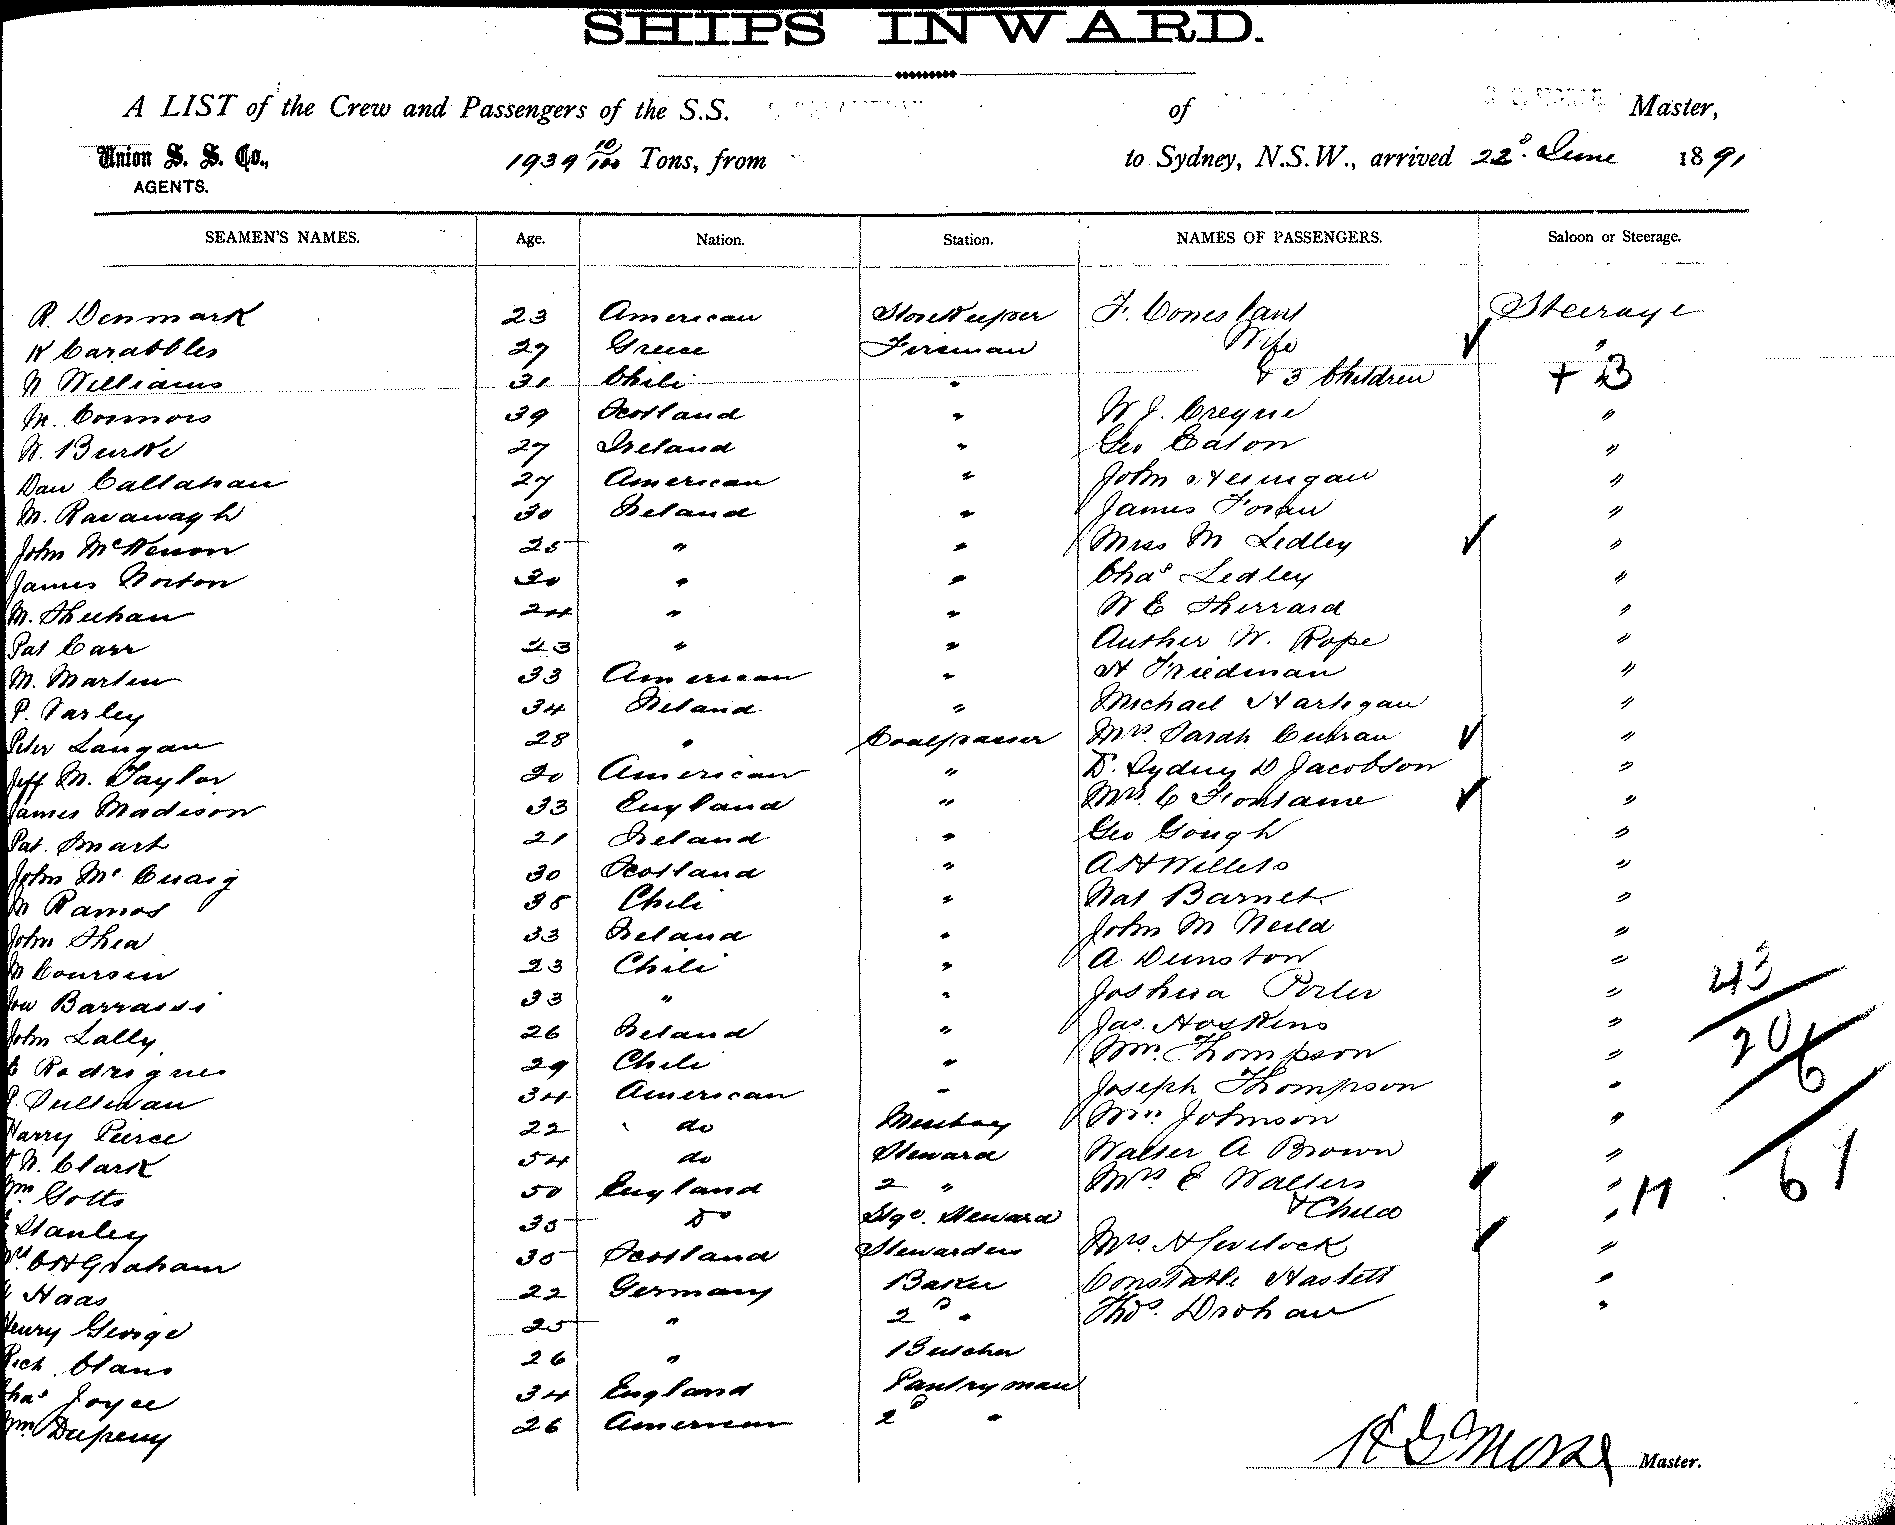 SHIPS INWARD.
A LIST of the Crew and Passengers of the S.S. of Master,
Union S. S. Co., 1939 10/100 Tons, from to Sydney, N.S.W., arrived 22d. June 1891
AGENTS.
SEAMEN'S NAMES. Age. Nation. Station. NAMES OF PASSENGERS. Saloon or Steerage.
R. Denmark 23 American Storekeeper F. Steerage
Carabbles 27 Greece Fireman Wife "
W Williams 31 Chili " & 3 Children + 3
M. Connors 39 Scotland " W J. Creyne "
W. Burke 27 Ireland " Geo Eaton "
Dan Callahan 27 American " John "
M. Kavanagh 30 Ireland " James Foran "
John 25 " " Miss M Ledley "
James Norton 30 " " Chas Ledley "
M. Sheehan 24 " " W E Sherrard "
Pat Carr 23 " " Auther W. Pope "
M. Marten 33 American " A Friedman "
P. Varley 34 Ireland " Michael Hartigan "
Peter Langan 28 " Coalpasser Mrs. Sarah Curran "
Jeff M. Taylor 20 American " Dr. Sydney D Jacobson "
James Madison 33 England " Mrs. C Fontaine "
Pat. Smart 21 Ireland " Geo Gough "
John Mc Cuaig 30 Scotland " A H Willets "
M Ramos 35 Chili " Nat Barnet "
John Shea 33 Ireland " John M Neild "
23 Chili " A Dunston "
Barrassi 33 " " Joshua Porter " 43
John Lally 26 Ireland " Jas. Hoskins " 20
Rodrigues 29 Chili " Wm. Thompson " 6
P. Sullivan 34 American " Joseph Thompson "
Harry Pierce 22 do Messboy Wm. Johnson "
W. Clark 54 do Steward Walter A Brown " 61
Wm Gotts 50 England 2 " Mrs E Walters "
Stanley 35 Do Stge. Steward & Child "
Mrs C H Graham 35 Scotland Stewardess Mrs. A "
Haas 22 Germany Baker Constable Haslett "
Henry George 25 " 2d " Thos. Drohan "
Rich Claus 26 " Butcher
Chas Joyce 34 England Pantryman
Wm Dupeny 26 American 2d "
Morse Master.